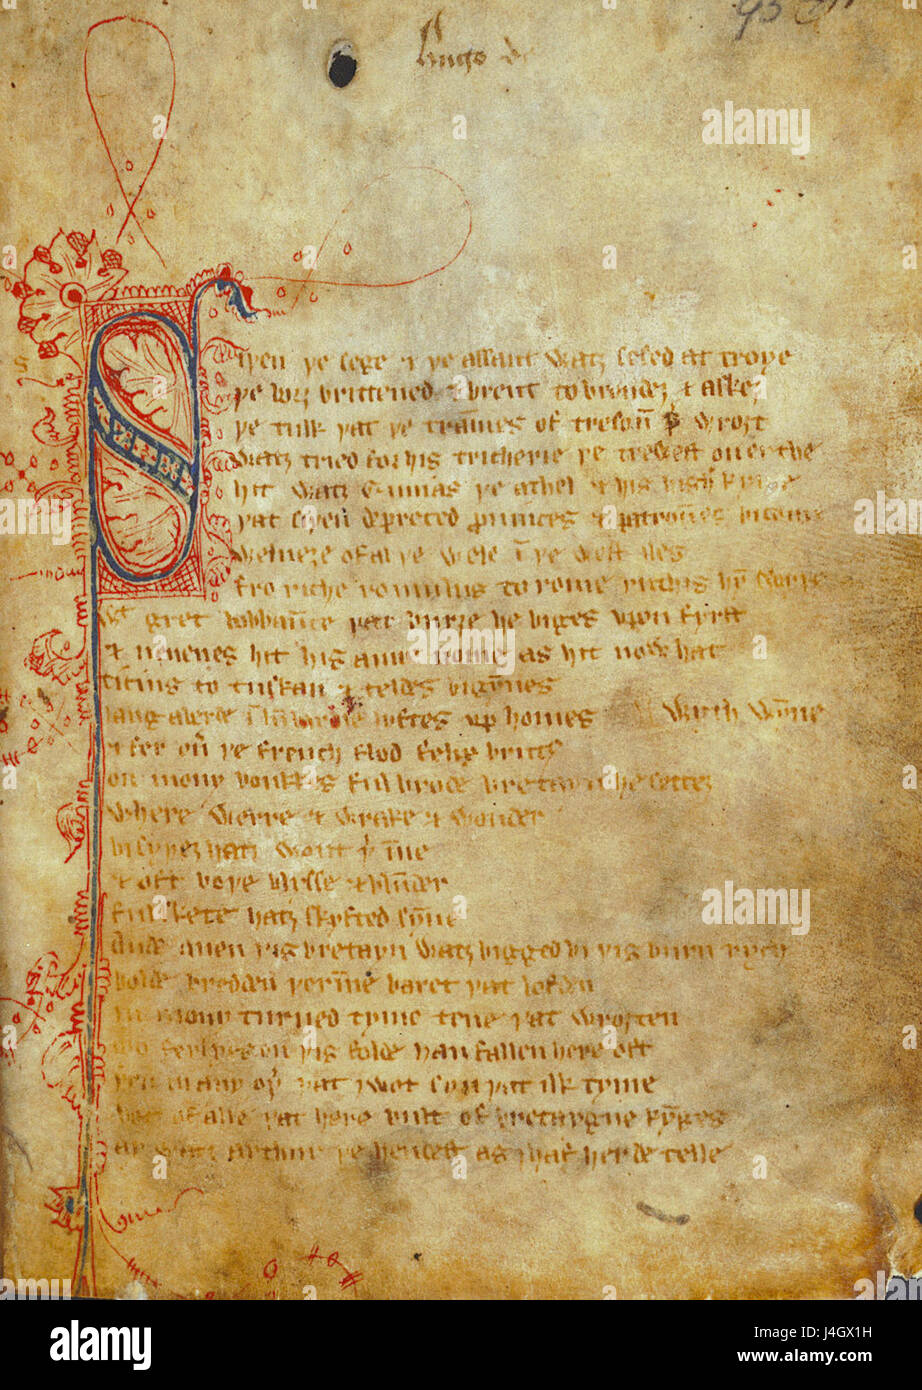 Hugo de
Siþen þe sege & þe assaut watz sesed at troye
þe borȝ brittened & brent to brondeȝ & askez
þe tulk þat þe trammes of tresoun þer wroȝt
watz tried for his tricherie þe trewest on erthe
hit watz Ennias þe athel & his highe kynde
þat siþen depreced prouinces & patrounes bicome
welneȝe of al þe wele in þe west iles
fro riche romulus to rome ricchis hym swyþe
gret bobbaunce þat burȝe he biges vpon fyrst
& neuenes hit his aune nome as hit now hat
ticius to tuskan & teldes bigynnes
langaberde in lumbardie lyftes vp homes
& fer ouer þe french flod felix brutus
on mony bonkkes ful brode bretayn he settez
wyth wynne
where werre & wrake & wonder
bi syþez hatz wont þer inne
& oft boþe blysse & blunder
ful skete hatz skyfted synne
Ande quen þis bretayn watz bigged bi þis burn rych
bolde bredden þerinne baret þat lofden
in mony turned tyme tene þat wroȝten
mo ferlyes on þis folde han fallen here oft
þen in any oþer þat I wot syn þat ilk tyme
bot of alle þat here bult of bretaygne kynges
ay watz arthur þe hendest as I haf herde telle
alamy
Image ID: J4GX1H
www.alamy.com